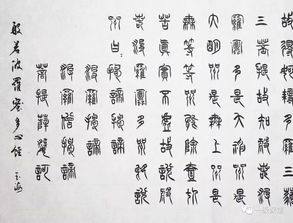 故得阿耨多羅三藐
三菩提故知般若波
羅蜜多是大神咒是
大明咒是無上咒是
無等等咒能除一切
苦真實不虛故說般
若波羅蜜多咒即說
咒曰
揭諦揭諦
波羅揭諦
波羅僧揭諦
菩提薩婆訶
般若波羅蜜多心經